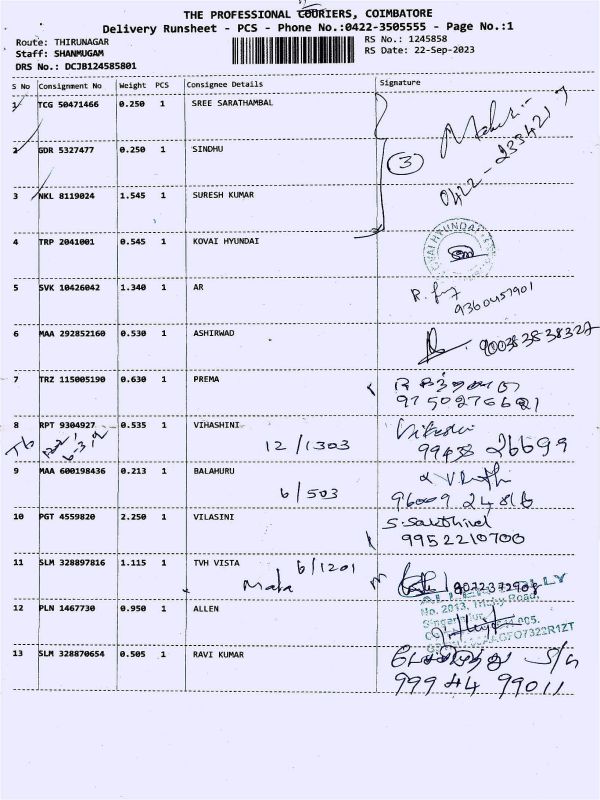 THE PROFESSIONAL COURIERS, COIMBATORE
Delivery Runsheet - PCS - Phone No.:0422-3505555 - Page No.:1
Route: THIRUNAGAR
RS No.: 1245858
Staff: SHANMUGAM
RS Date: 22-Sep-2023
DRS No.: DCJB124585801
S No Consignment No Weight PCS Consignee Details Signature
1 TCG 50471466 0.250 1 SREE SARATHAMBAL
2 GDR 5327477 0.250 1 SINDHU
3
0422-2334217
3 NKL 8119024 1.545 1 SURESH KUMAR
4 TRP 2041001 0.545 1 KOVAI HYUNDAI
5 SVK 10426042 1.340 1 AR
9360457901
6 MAA 292852160 0.530 1 ASHIRWAD
7 TRZ 115005190 0.630 1 PREMA
9750276621
8 RPT 9304927 0.535 1 VIHASHINI
12/1303
99438 26699
9 MAA 600198436 0.213 1 BALAHURU
6/503
96009 24816
10 PGT 4559820 2.250 1 VILASINI
S. Sakthivel
9952210700
11 SLM 328897816 1.115 1 TVH VISTA
6/1201
12 PLN 1467730 0.950 1 ALLEN
No. 2013, Trichy Road,
13 SLM 328870654 0.505 1 RAVI KUMAR
99944 99011